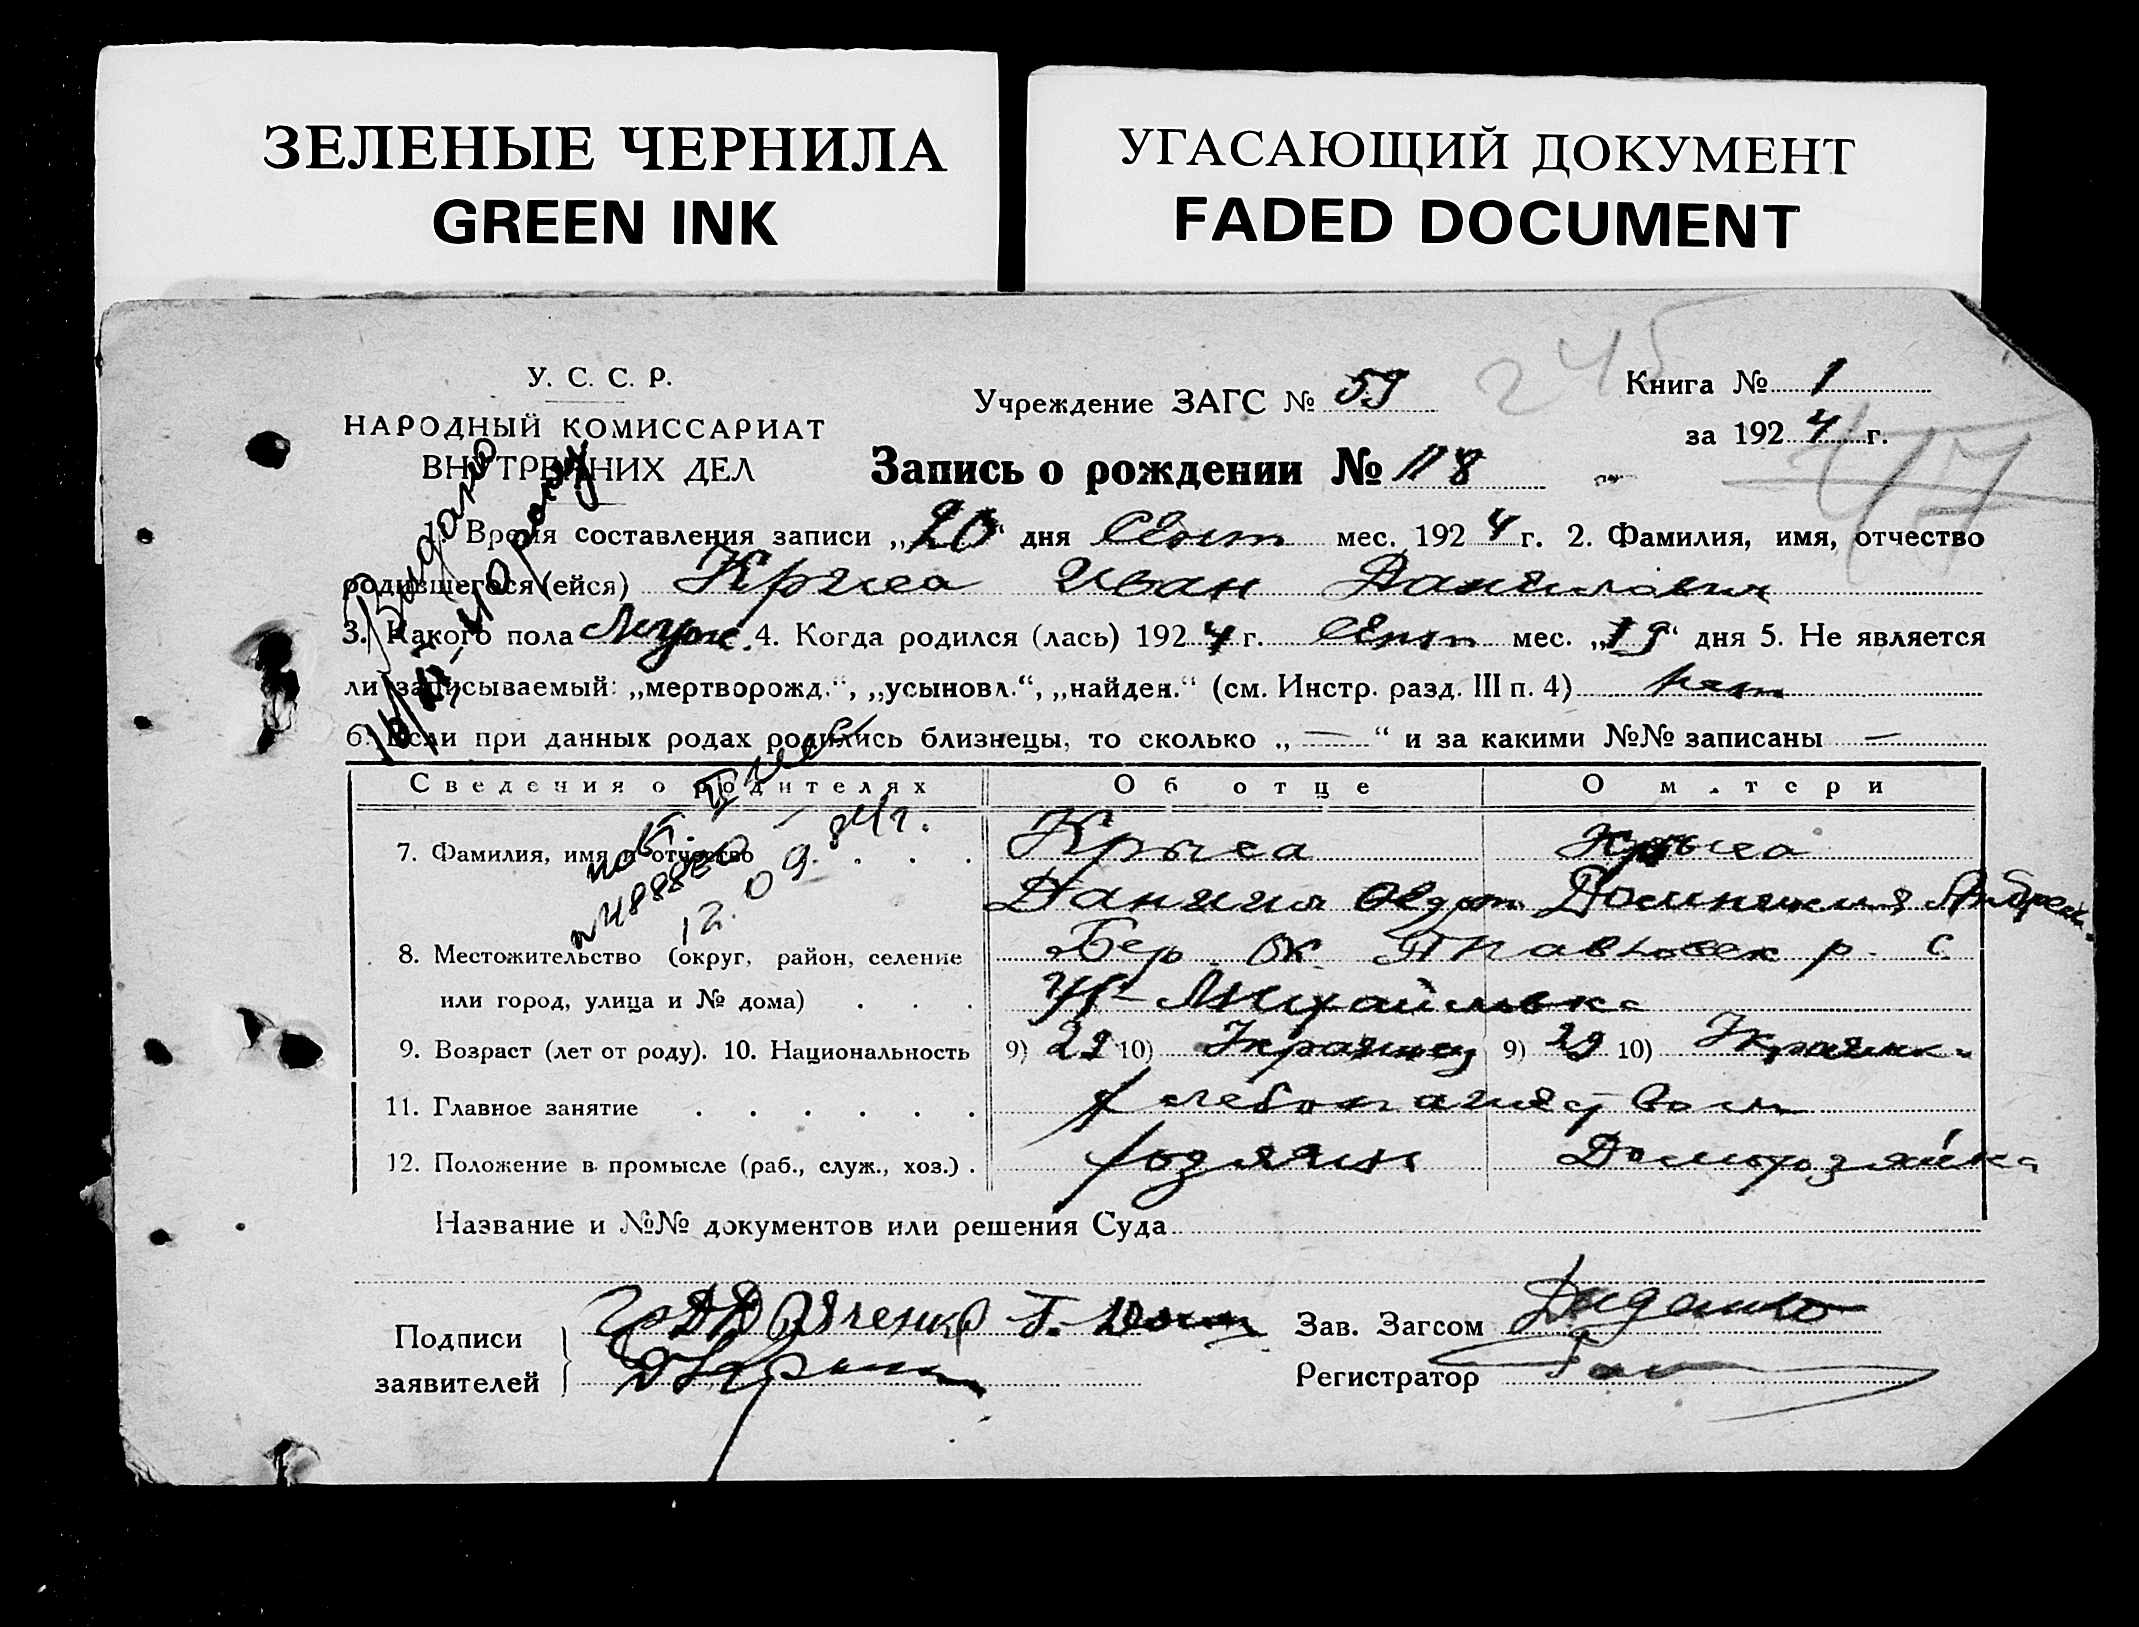 ЗЕЛЕНЫЕ ЧЕРНИЛА
GREEN INK
УГАСАЮЩИЙ ДОКУМЕНТ
FADED DOCUMENT
245
У. С. С. Р.
НАРОДНЫЙ КОМИССАРИАТ
ВНУТРЕННИХ ДЕЛ
Учреждение ЗАГС № 59
Книга № 1
за 1924 г.
417
Запись о рождении № 118
1. Время составления записи „20“ дня Сент мес. 1924 г. 2. Фамилия, имя, отчество
родившегося (ейся) Крыса Иван Данилович
3. Какого пола Муж. 4. Когда родился (лась) 1924 г. Сент мес. „19“ дня 5. Не является
ли записываемый: „мертворожд.“, „усыновл.“, „найден.“ (см. Инстр. разд. III п. 4) нет
6. Если при данных родах родились близнецы, то сколько „—“ и за какими №№ записаны —
Выдано
12.09.84г.
Сведения о родителях Об отце О матери
7. Фамилия, имя и отчество . . . Крыса Крыса
Данила
8. Местожительство (округ, район, селение Бер. Ок. р. с.
или город, улица и № дома) . . . Михайловка
9. Возраст (лет от роду). 10. Национальность 9) 29 10) Украинец 9) 29 10) Украинк
11. Главное занятие . . . . . . хлебопашеством
12. Положение в промысле (раб., служ., хоз.) . хозяин Домохозяйка
Название и №№ документов или решения Суда
Подписи
заявителей
Зав. Загсом
Регистратор